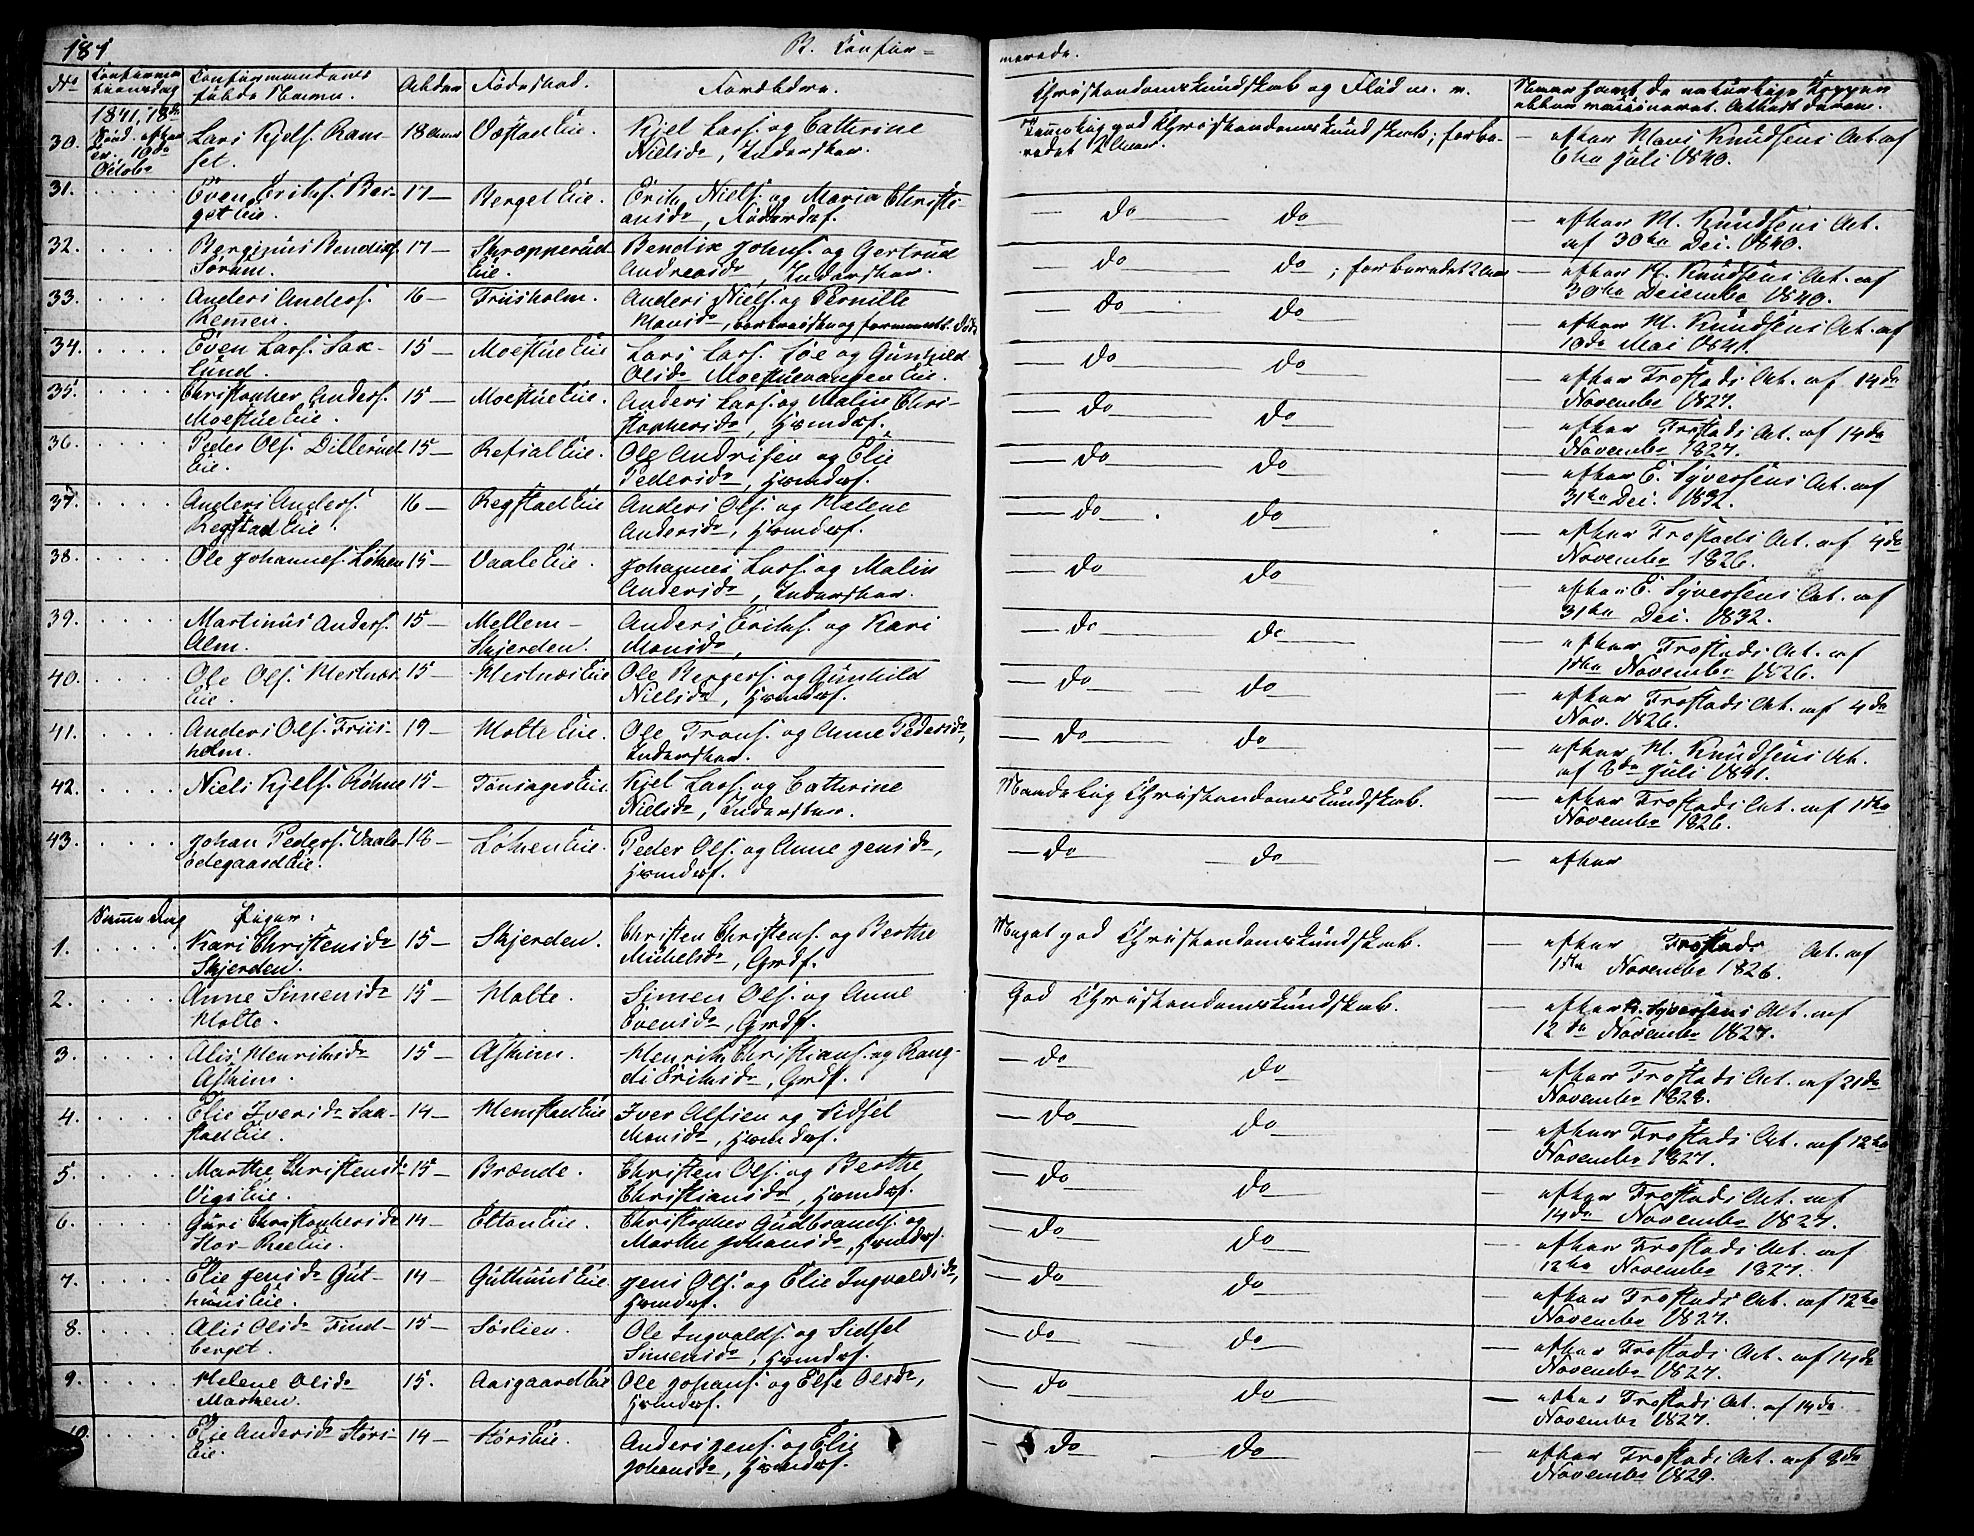 181.
B. Confir=
merede.
No
Confirma
tionsdag
Confirmandens
fulde Navn.
Alder
Fødested.
Forældere.
Christendomskundskab og Flid m. v.
Naar samt de naturlige Kopper
ellers vaccineret. Attest derom.
1841, 18de
Sønd. efter
10de
Octobr
30.
Lars Kjels. Ram-
set.
18 Aar
Væstad Eie.
Kjel Lars. og Cathrine
Nielsdr, Inderster.
Temmelig god Christendomskundskab; forbe-
redet 2 Aar.
— efter Mons Knudsens Att. af
6te Juli 1840.
31.
Even Eriks. Ber-
get Eie.
17 —
Berget Eie.
Erik Niels. og Maria Christi
ansdr,
— do — do
— efter M. Knudsens Att.
af 30te Dec. 1840.
32.
Berginus Bendixs.
17 —
Skrepperud
Eie.
Bendix Johns. og Gertrud
Andreasdr, Inderster.
— do — do; forberedet 2 Aar
— efter M. Knudsens Att. af
30te Decembr 1840.
33.
Anders Anders.
Remen.
16 —
Friisholm.
Anders Niels. og Pernille
Monsdr,
— do — do
— efter M. Knudsens Att. af
10de Mai 1841.
34.
Even Lars. Sax-
lund.
15 —
Moestue Eie
Lars Lars. Loe og Gunhild
Olsdr Moestuevangen Eie.
— do — do
— efter Frostads Att. af 14de
November 1827.
35.
Christopher Anders.
Moestue Eie.
15 —
Moestue Eie.
Anders Lars. og Malin Chri-
stophersdr, Hsmdsf.
— do — do
— efter Frostads Att. af 14de
Novembr 1827.
36.
Peder Ols. Dillerud
Eie.
15 —
Refsal Eie.
Ole Andrisen og Elie
Pedersdr, Hsmdsf.
— do — do
— efter E. Syversens Att. af
31te Dec. 1832.
37.
Anders Anders.
Regstad Eie.
16 —
Regstad Eie
Anders Ols. og Malene
Andersdr, Hsmdsf.
— do — do
— efter Frostads Att. af 4de
Novembr 1826.
38.
Ole Johannes. Løken
15 —
Vaale Eie.
Johannes Lars. og Malin
Andersdr, Inderster.
— do — do
— efter E. Syversens Att. af
31te Dec. 1832.
39.
Martinus Anders.
Alm.
15 —
Mellem-
Skjerden.
Anders Eriks. og Kari
Monsdr,
— do — do
— efter Frostads Att. af
11te Novembr 1826.
40.
Ole Ols. Mestnæs
Eie.
15 —
Mestnæs Eie
Ole Bergers. og Gunhild
Nielsdr, Hsmdsf.
— do — do
— efter Frostads Att. af 4de
Nov. 1826.
41.
Anders Ols. Friis-
holm.
19 —
Molte Eie.
Ole Frans. og Anne Pedersdr,
Inderster.
— do — do
— efter M. Knudsens Att.
af 8de Juli 1841.
42.
Niels Kjels. Røhne
15 —
Tønsager Eie.
Kjel Lars. og Cathrine
Nielsdr, Inderster.
Maadelig Christendomskundskab.
— efter Frostads Att. af 11te
Novembr 1826.
43.
Johan Peders. Vaale-
ødegaard Eie.
18 —
Løken Eie.
Peder Ols. og Anne Jensdr,
Hsmdsf.
— do — do
— efter
Samme Dag
Piger:
1.
Kari Christensdr
Skjerden.
15 —
Skjerden.
Christen Christens. og Berthe
Michelsdr, Grdf.
Meget god Christendomskundskab.
— efter Frostads Att. af
11te Novembr 1826.
2.
Anne Simensdr
Molte.
15 —
Molte.
Simen Ols. og Anne
Evensdr, Grdf.
God Christendomskundskab.
— efter E. Syversens Att. af
12te Novembr 1827.
3.
Alis Henriksdr
Askim.
15 —
Askim.
Henrik Christians. og Rang-
di Eriksdr, Grdf.
— do — do
— efter Frostads Att. af 21de
Novembr 1828.
4.
Elie Iversdr Saa-
stad Eie.
14 —
Menstad Eie
Iver Alfsen og Sidsel
Monsdr, Hsmdsf.
— do — do
— efter Frostads Att. af 12te
Novembr 1827.
5.
Marthe Christensdr
Vigs Eie.
15 —
Brænde.
Christen Ols. og Berthe
Christiansdr, Hsmdsf.
— do — do
— efter Frostads Att. af
14de Novembr 1827.
6.
Guri Christophersdr
Stor-Ree Eie.
14 —
Elton Eie.
Christopher Gudbrands. og
Marthe Johansdr, Hsmdsf.
— do — do
— efter Frostads Att. af
12te Novembr 1827.
7.
Elie Jensdr Gut-
huus Eie.
14 —
Guthuus Eie.
Jens Ols. og Elie Ingvaldsdr,
Hsmdsf.
— do — do
— efter Frostads Att. af 12te
Novembr 1827.
8.
Alis Olsdr Find-
berget.
15 —
Sørlien.
Ole Ingvalds. og Sidsel
Simensdr, Hsmdsf.
— do — do
— efter Frostads Att. af 14de
Novembr 1827.
9.
Helene Olsdr
Marken.
15.
Aasgaard Eie
Ole Johans. og Else Olsdr,
Hsmdsf.
— do — do
— efter Frostads Att. af 14de
Novembr 1827.
10.
Elie Andersdr Støri-
Eie.
14 —
Støri Eie.
Anders Jens. og Elie
Johansdr, Hsmdsf.
— do — do
— efter Frostads Att. af 8de
Novembr 1829.